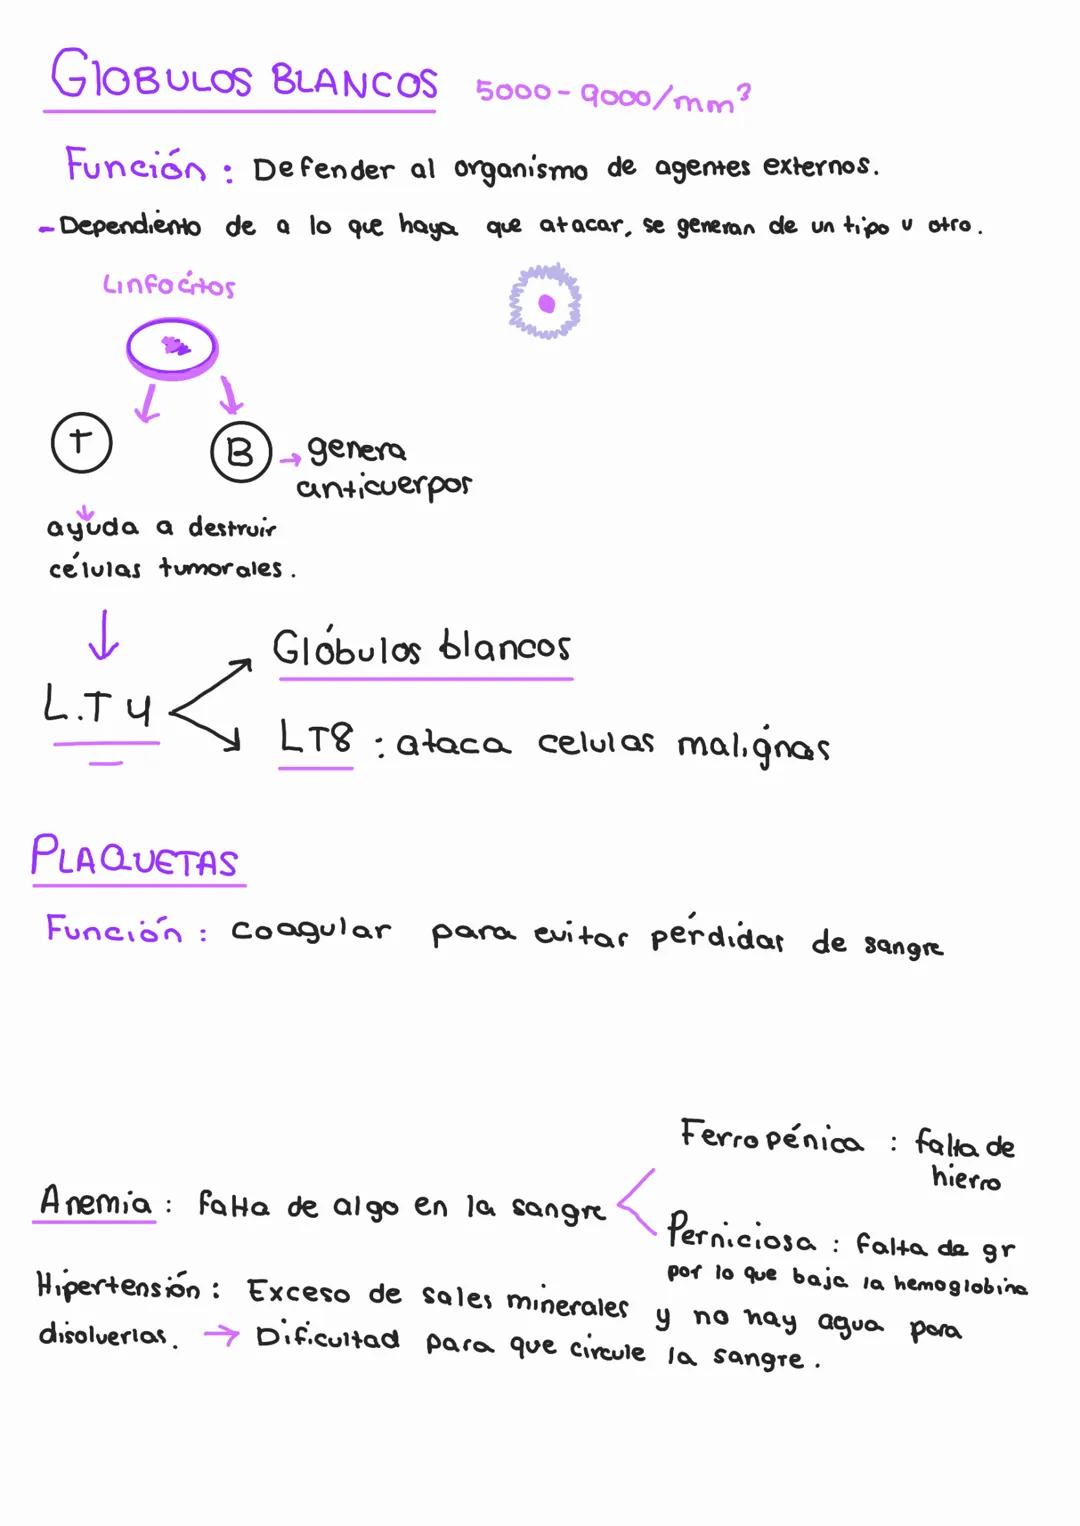 GlOBULOS BLANCOS 5000-9000/mm³
Función: Defender al organismo de agentes externos.
- Dependiento de a lo que haya que atacar, se generan de un tipo u otro.
Linfocitos
T
B → genera
anticuerpos
ayuda a destruir
células tumorales.
Glóbulos blancos
L.T4
LT8: ataca celulas malignas
PLAQUETAS
Función: coagular para evitar pérdidas de sangre
Ferropénica: falta de
hierro
Anemia: falta de algo en la sangre
Perniciosa: falta de gr
por lo que baja la hemoglobina
Hipertensión: Exceso de sales minerales y no hay agua para
disolverlas. → Dificultad para que circule la sangre.